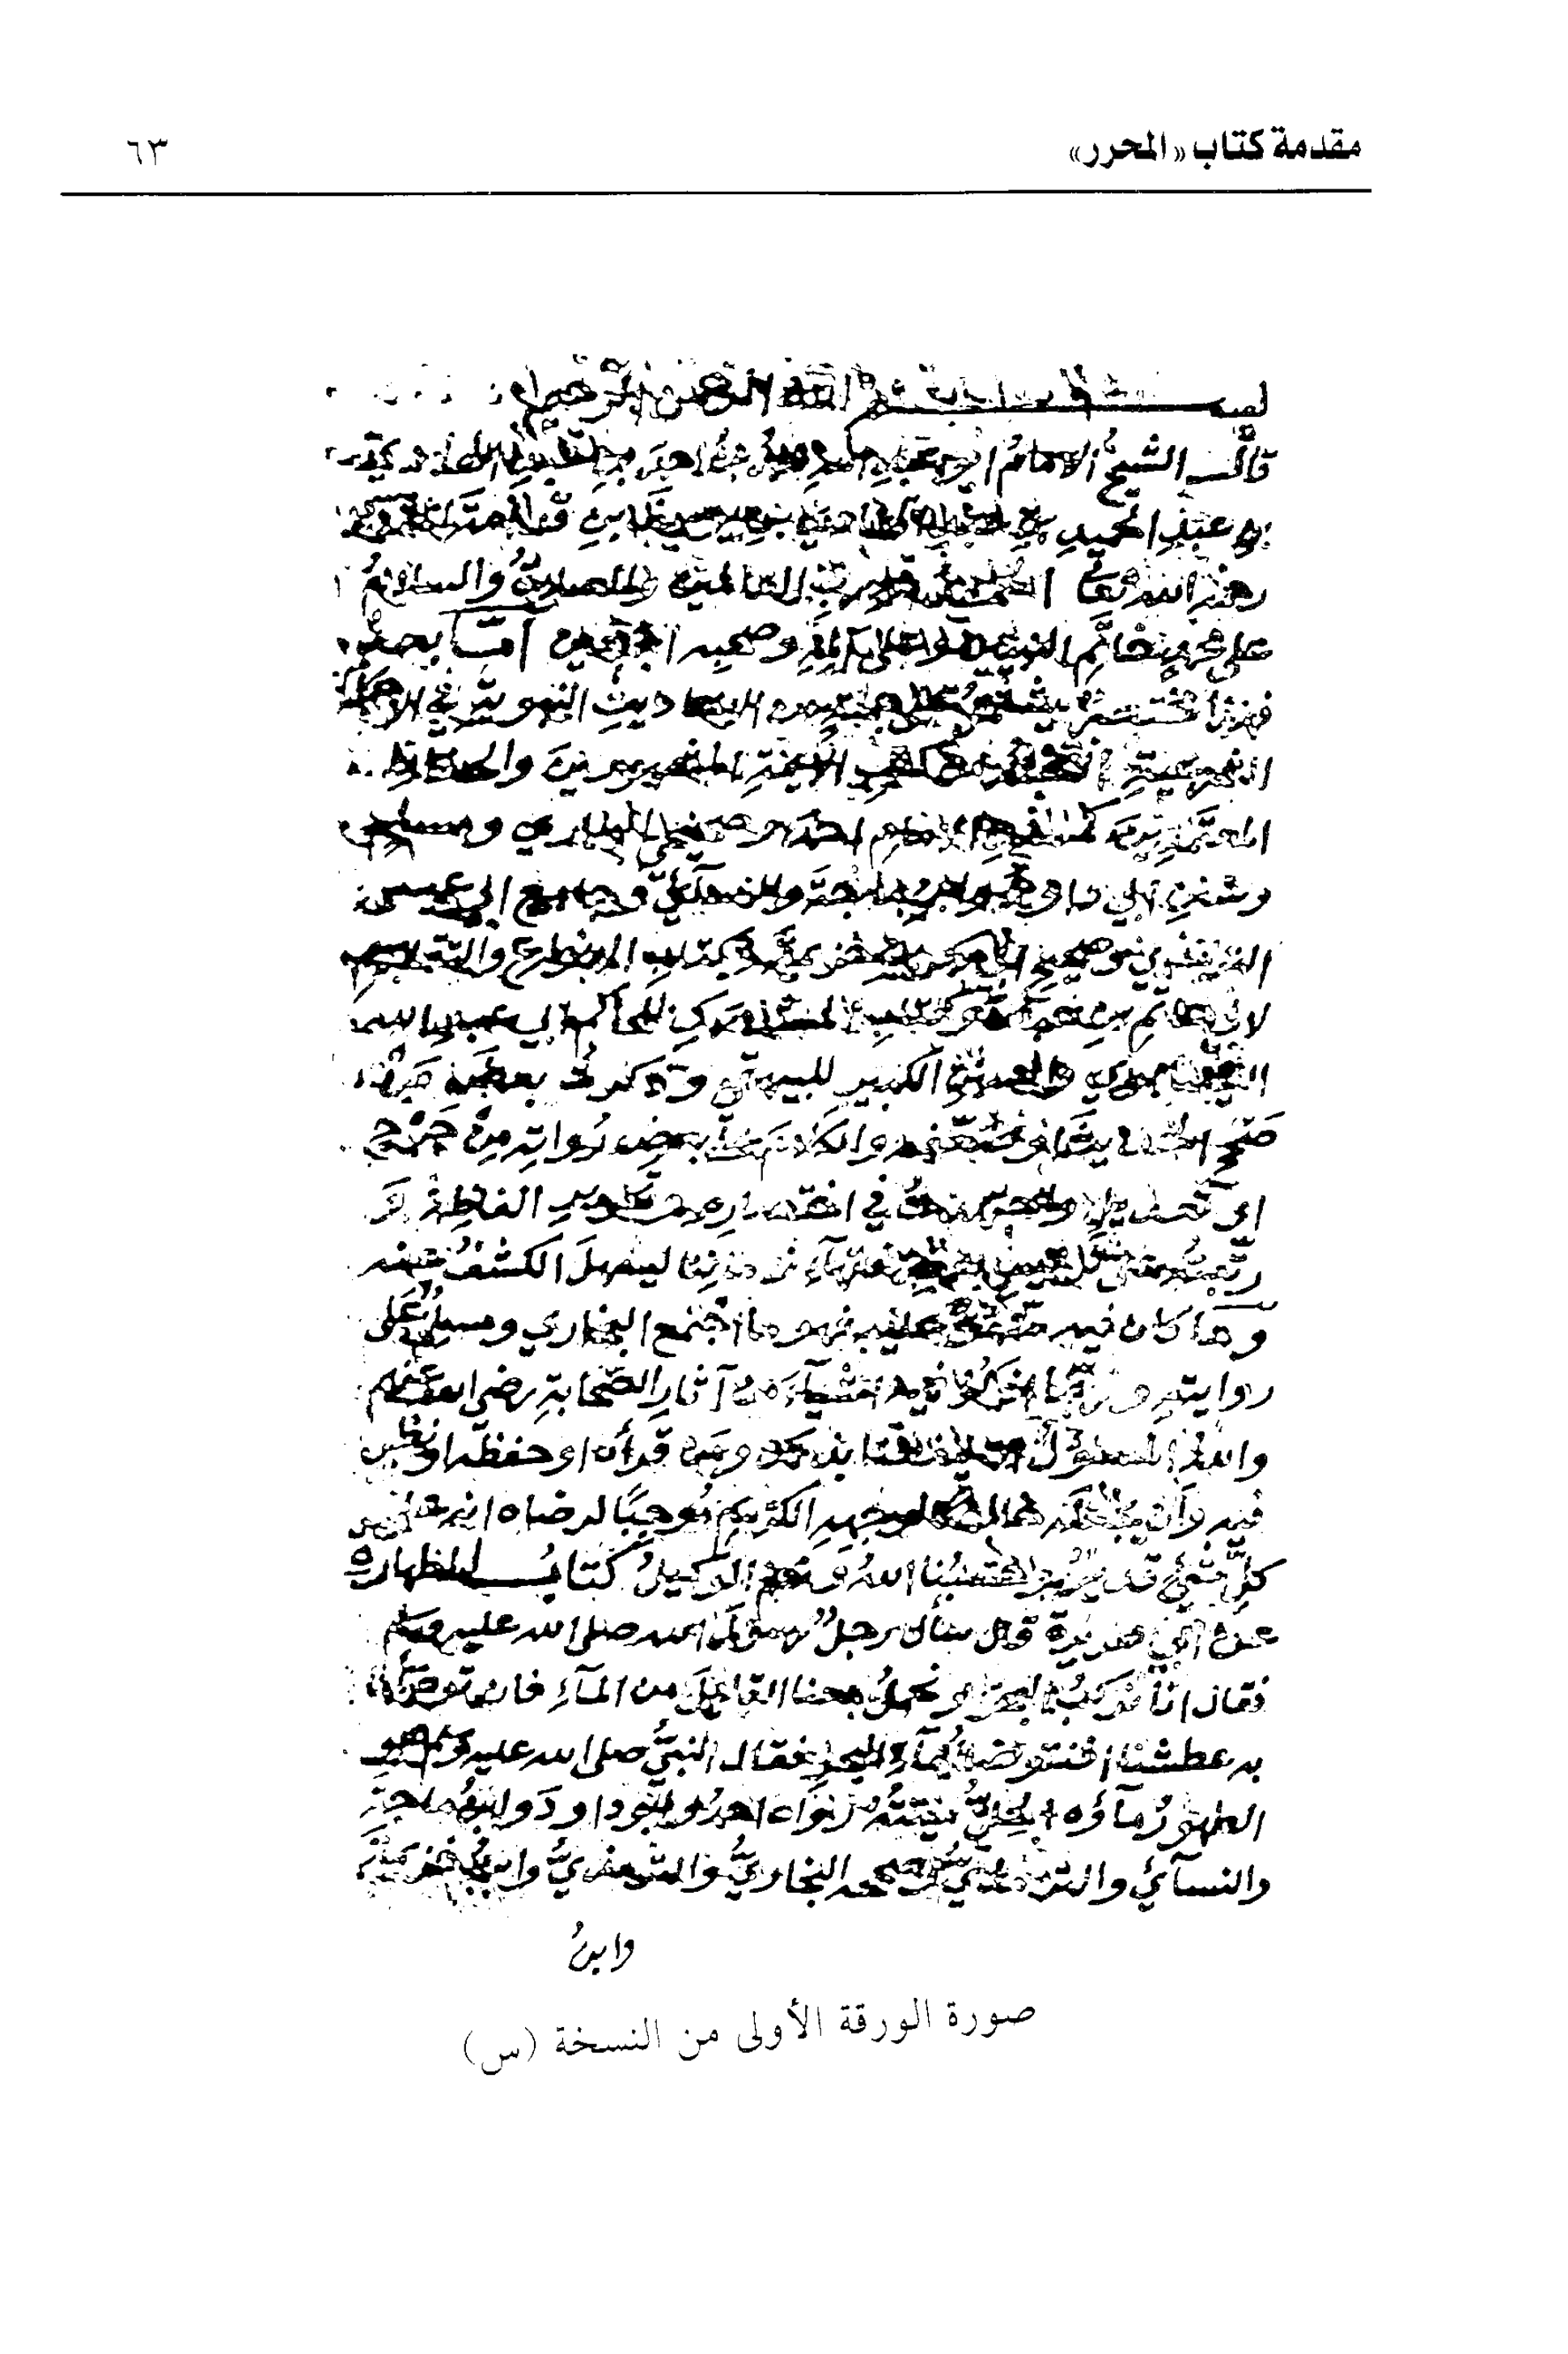 مقدمة كتاب «المحرر»
٦٣
الله الرحمن الرحيم
قال الشيخ الامام ابو عبد الله احمد بن
بن عبد الحميد بن
رحمه الله تعالى الحمد لله رب العالمين والصلاة والسلام
على خاتم النبيين وعلى آله وصحبه اجمعين اما بعد
فهذا مختصر يشتمل على جملة من الاحاديث النبوية في الاحكام
الشرعية الأئمة المشهورين والحفاظ
المعتمدين كمسند الامام احمد وصحيحي البخاري ومسلم
وسنن ابي داود وابن ماجة والنسآئي وجامع ابي عيسى
الترمذي وصحيح ابي بكر بن خزيمة وكتاب الانواع والتقاسيم
لابي حاتم بن حبان وكتاب المستدرك للحاكم ابي عبد الله
النيسابوري والسنن الكبير للبيهقي وذكرت بعض من
صحح الحديث او ضعفه والكلام على بعض رواته من جرح
او تعديل واجتهدت في اختصاره وتحرير الفاظه و
رتبته على ترتيب بعض فقهآء زماننا ليسهل الكشف منه
وما كان فيه متفق عليه فهو ما اجتمع البخاري ومسلم على
روايته وربما اذكر فيه اشيآء من آثار الصحابة رضي الله عنهم
والله المسؤل ان ينفعنا بذلك ومن قرأه او حفظه او نظر
فيه وأن يجعله خالصا لوجهه الكريم موجبًا لرضاه انه على
كل شيء قدير حسبنا الله ونعم الوكيل كتاب الطهارة
عن ابي هريرة قال سأل رجل رسول الله صلى الله عليه وسلم
فقال انا نركب البحر ونحمل معنا القليل من المآء فان توضأنا
به عطشنا افنتوضأ بمآء البحر فقال النبي صلى الله عليه وسلم هو
الطهور مآؤه الحل ميتته رواه احمد وابو داود وابن ماجة
والنسآئي والترمذي وصححه البخاري والترمذي وابن خزيمة
وابن
صورة الورقة الأولى من النسخة (س)